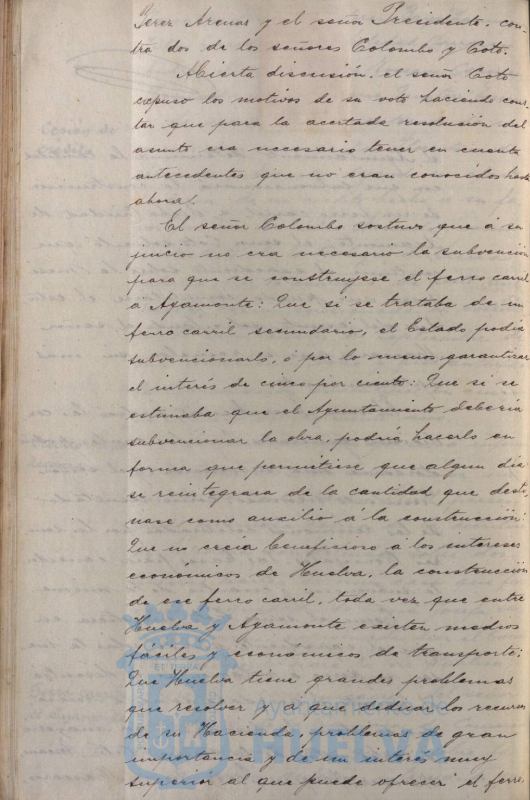 Perez Arenas y el señor Presidente, con-
tra dos de los señores Colombo y Coto.
Abierta discusión, el señor Coto
expuso los motivos de su voto haciendo cons-
tar que para la acertada resolución del
asunto era necesario tener en cuenta
antecedentes que no eran conocidos hasta
ahora.
El señor Colombo sostuvo que á su
juicio no era necesario la subvención
para que se construyese el ferro carril
a Ayamonte: Que si se trataba de un
ferro carril secundario, el Estado podia
subvencionarlo, ó por lo menos garantizar
el interés de cinco por ciento: Que si se
estimaba que el Ayuntamiento deberia
subvencionar la obra, podria hacerlo en
forma que permitiese que algun dia
se reintegrara de la cantidad que desti-
nase como auxilio á la construcción:
Que no creia beneficioso á los intereses
económicos de Huelva, la construcción
de ese ferro carril, toda vez que entre
Huelva y Ayamonte existen medios
fáciles y económicos de transporte:
Que Huelva tiene grandes problemas
que resolver y á que dedicar los recursos
de su Hacienda, problemas de gran
importancia y de un interés muy
superior al que puede ofrecer el ferro
Ayuntamiento de
HUELVA